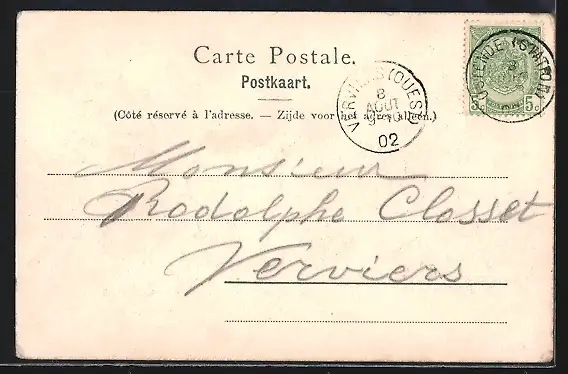 Carte Postale.
Postkaart.
(Côté réservé à l'adresse. — Zijde voor het adres alleen.)
VERVIERS (OUEST)
8
AOUT
02
OSTENDE
5c 5c
Monsieur
Rodolphe Closset
Verviers